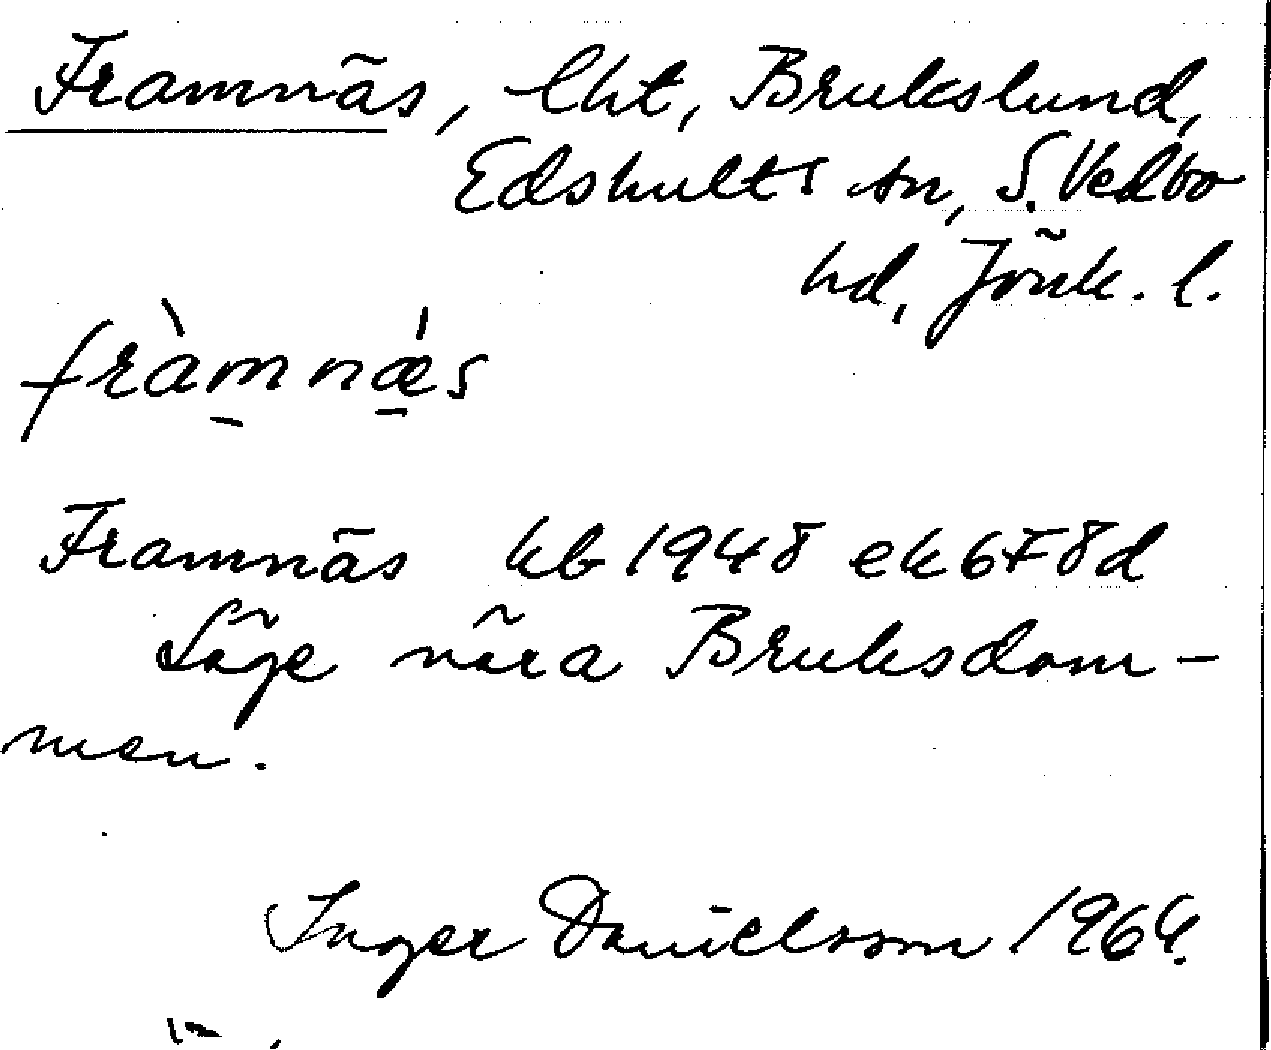 Framnäs, lht, Brukslund,
Edshults sn, S. Vedbo
hd, Jönk. l.
fràmnǽs
Framnäs kb 1948 ek 6F8d
Läge nära Bruksdam-
men.
Inger Danielsson 1964.